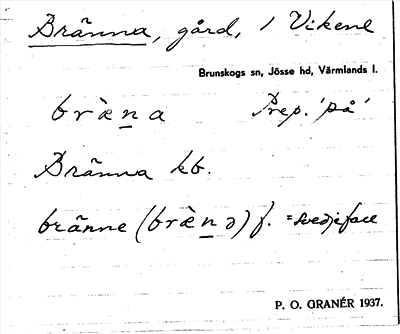 Bränna, gård, / Vikene
Brunskogs sn, Jösse hd, Värmlands l.
bræ̀n̲a Prep. 'på'
Bränna kb.
bränne (bræ̀n̲ə) f. = svedjefall
P. O. GRANÉR 1937.